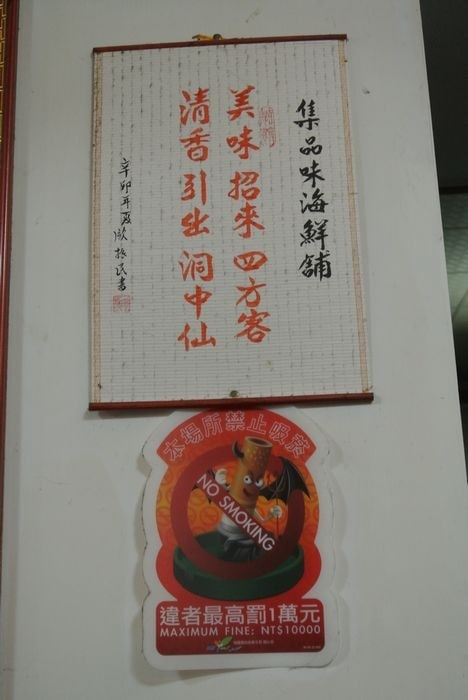 集品味海鮮舖
美味招來四方客
清香引出洞中仙
辛卯年夏 振民書
本場所禁止吸菸
NO SMOKING
違者最高罰1萬元
MAXIMUM FINE: NT$10000